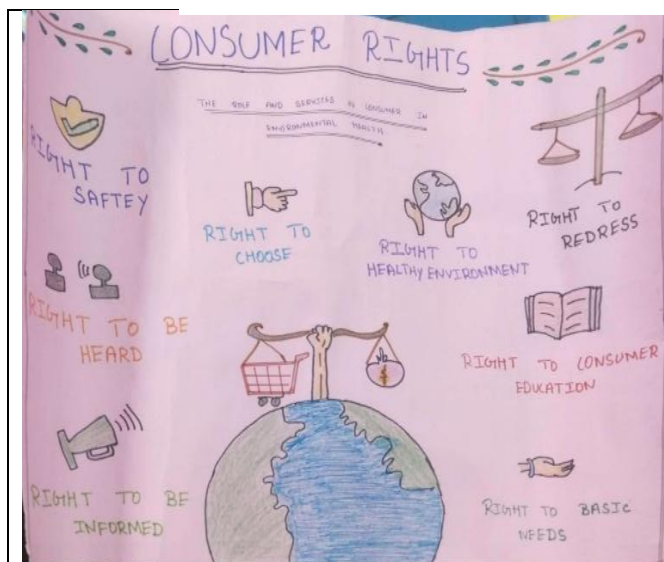 CONSUMER RIGHTS
THE ROLE AND SERVICES OF CONSUMER IN
ENVIRONMENTAL HEALTH
RIGHT TO
SAFTEY
RIGHT TO
CHOOSE
RIGHT TO
HEALTHY ENVIRONMENT
RIGHT TO
REDRESS
RIGHT TO BE
HEARD
RIGHT TO CONSUMER
EDUCATION
RIGHT TO BE
INFORMED
RIGHT TO BASIC
NEEDS